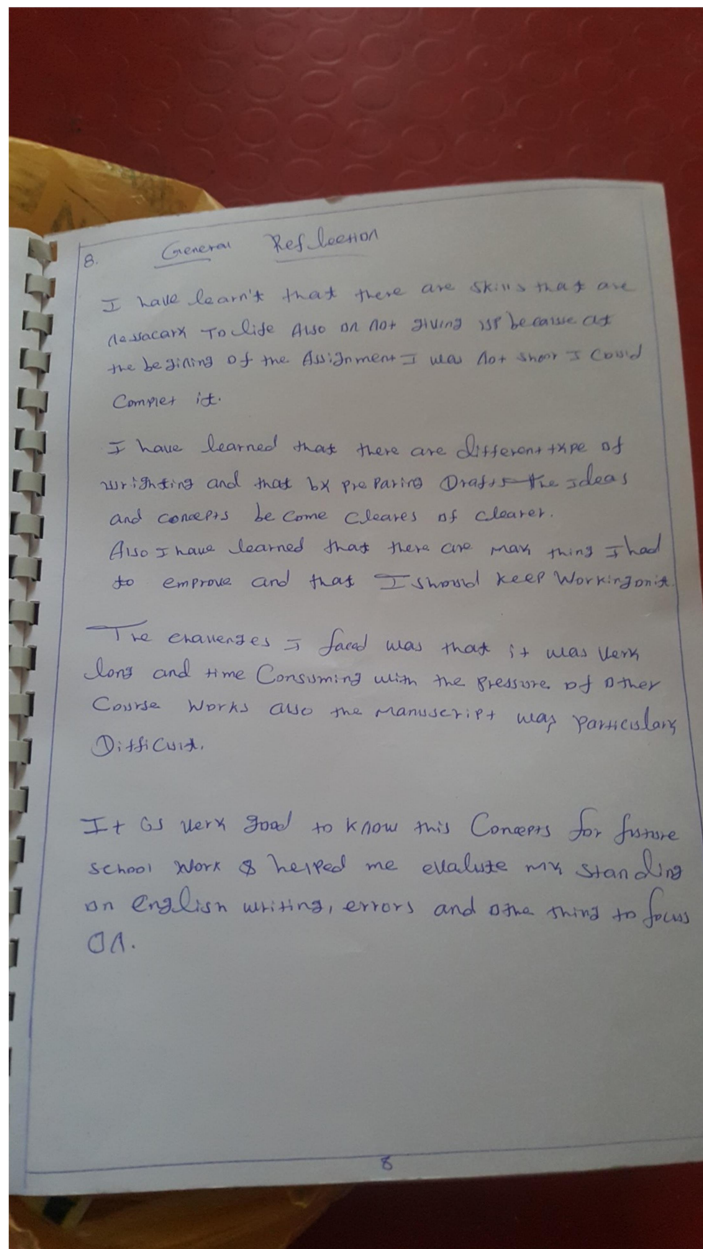 8. General Reflection
I have learn't that there are skills that are
nessacary To life Also on not giving up because at
the begining of the Assignment I was not shour I could
Complet it.
I have learned that there are different type of
wrighting and that by preparing Drafts the ideas
and concepts become cleares of clearer.
Also I have learned that there are many thing I had
to emprove and that I should keep working on it.
The challenges I faced was that it was very
long and time Consuming with the pressure of other
Course works also the manuscript was particulary
Difficult.
It is very good to know this Concepts for future
school work & helped me evalute my standing
on english writing, errors and othe thing to focus
on.
8